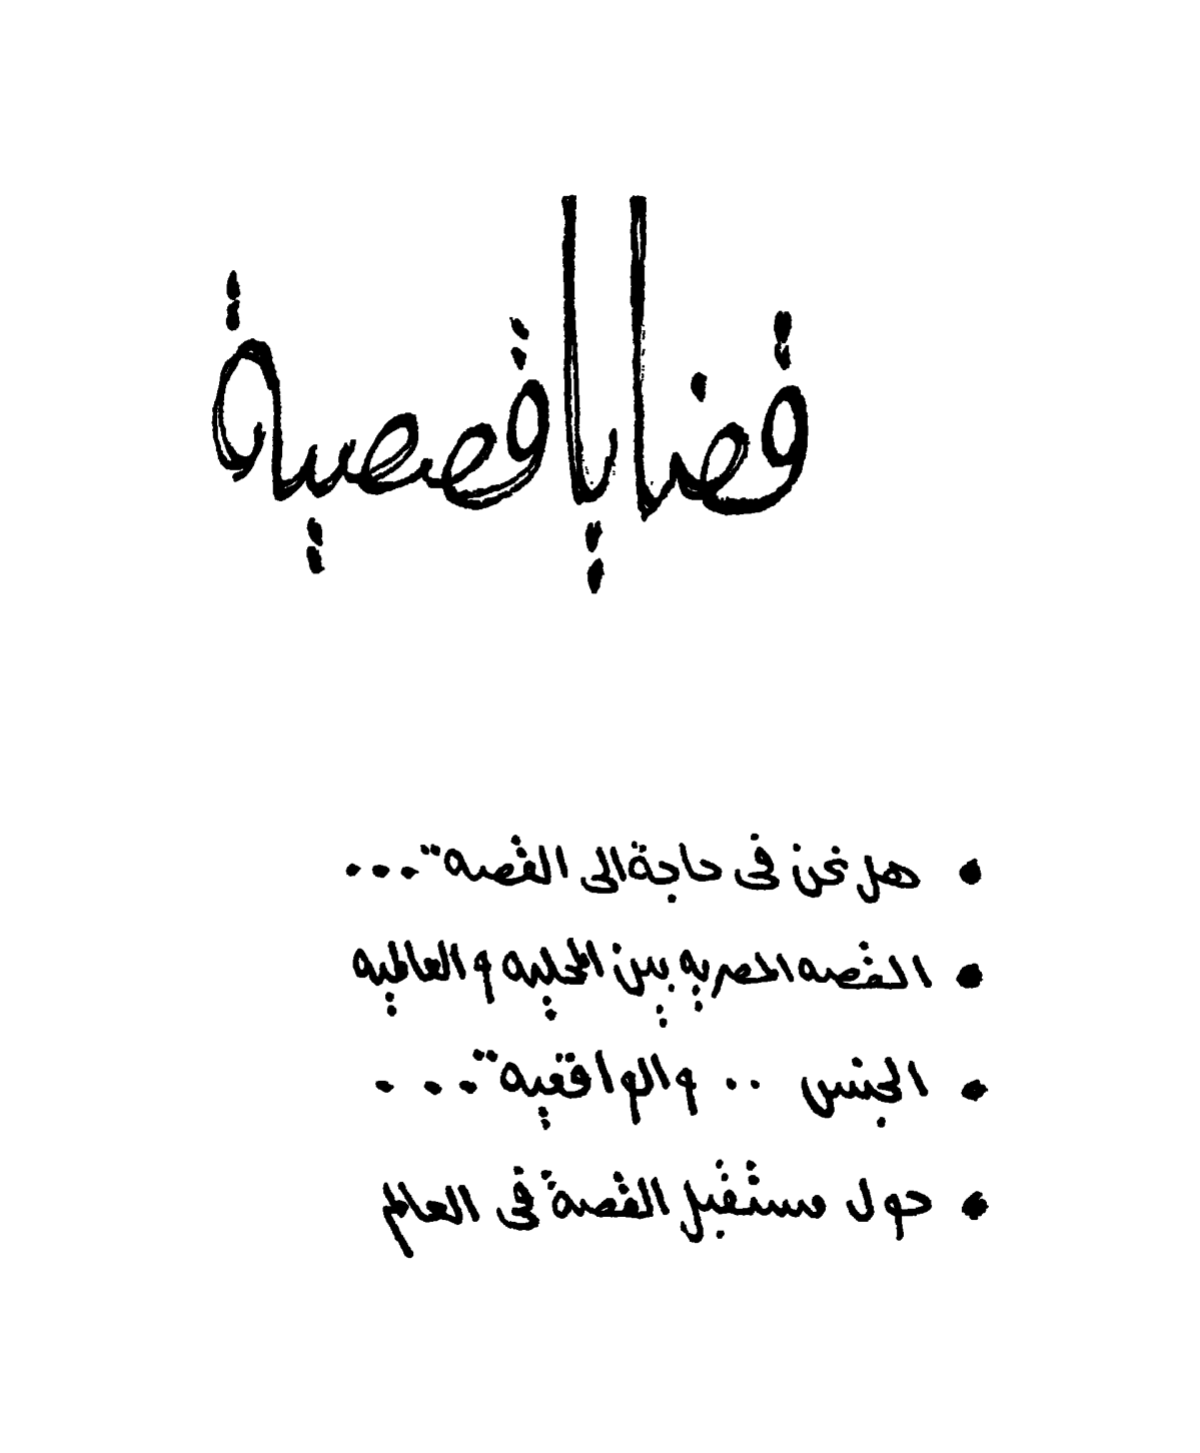 قضايا قصصية
• هل نحن فى حاجة الى القصة ...
• القصه المصريه بين المحليه والعالميه
• الجنس .. والواقعية ...
• حول مستقبل القصة فى العالم